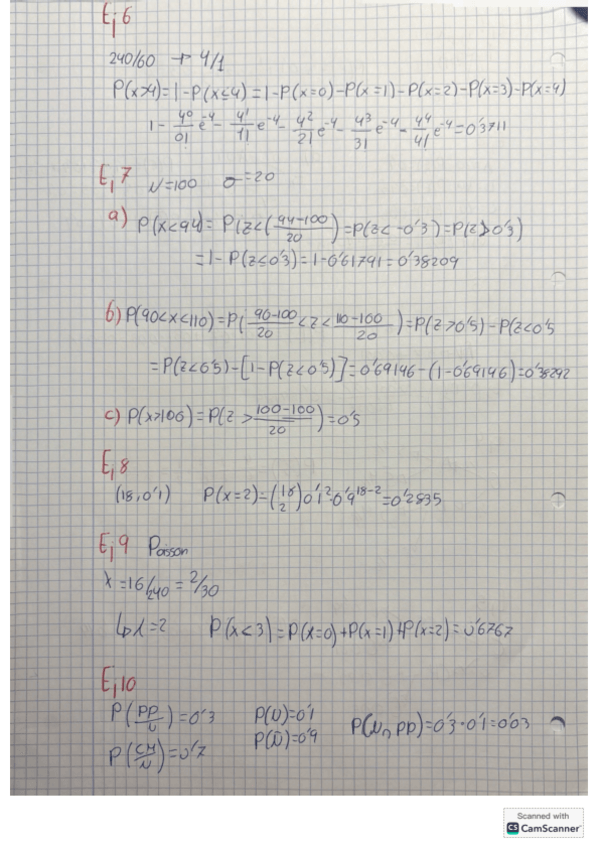 Ej6
240/60 → 4/1
P(x>4)=1-P(x≤4)=1-P(x=0)-P(x=1)-P(x=2)-P(x=3)-P(x=4)
1- 4⁰/0! e⁻⁴ - 4¹/1! e⁻⁴ - 4²/2! e⁻⁴ - 4³/3! e⁻⁴ - 4⁴/4! e⁻⁴ = 0'3711
Ej7 N=100 σ=20
a) P(x<94)= P(z<(94-100/20)=P(z<-0'3)=P(z>0'3)
=1-P(z≤0'3)=1-0'61791=0'38209
b) P(90<x<110)=P(90-100/20<z<110-100/20)=P(z>0'5)-P(z<0'5
=P(z<0'5)-[1-P(z<0'5)]=0'69146-(1-0'69146)=0'38292
c) P(x>106)=P(z>100-100/20)=0'5
Ej8
(18,0'1) P(x=2)=(18/2)0'1²·0'9¹⁸⁻²=0'2835
Ej9 Poisson
λ=16/240=2/30
↳λ=2 P(x<3)=P(x=0)+P(x=1)+P(x=2)=0'6767
Ej10
P(PP/N)=0'3 P(N)=0'1 P(N∩PP)=0'3·0'1=0'03
P(CH/N)=0'7 P(N̄)=0'9
Scanned with
CS CamScanner